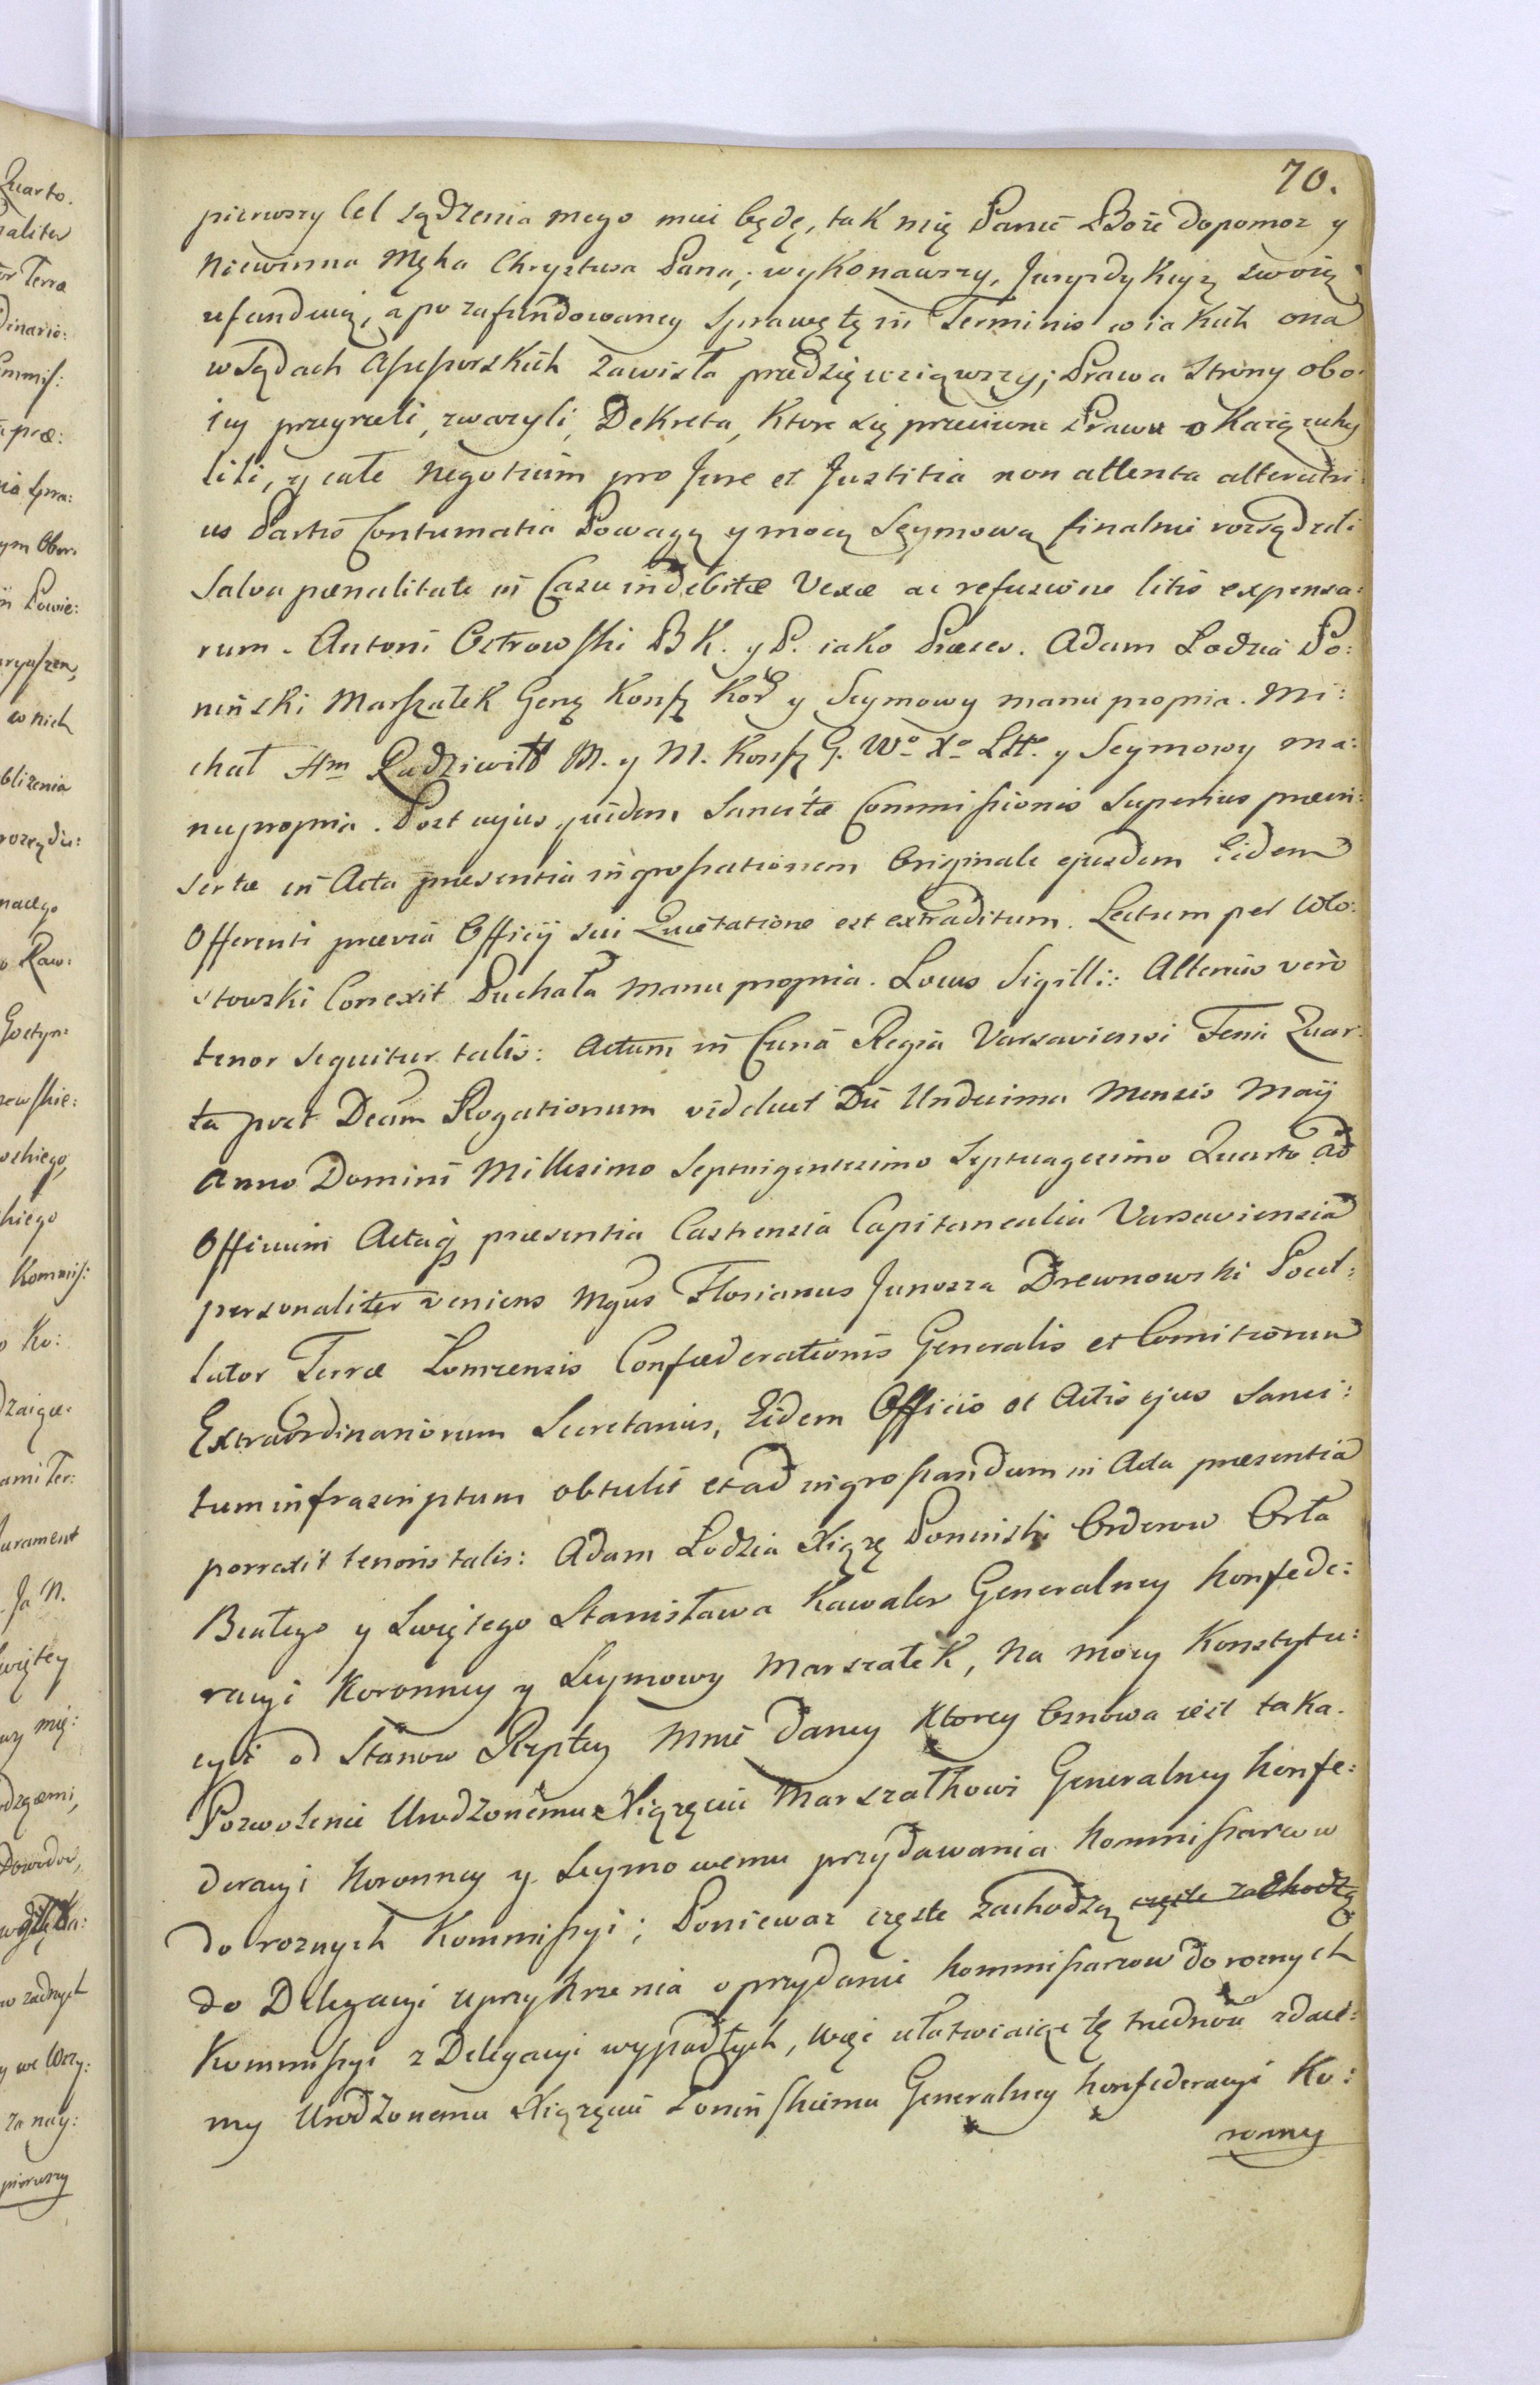 70.
pierwszy Cel sądzenia mego mieć będę, tak mię Panie Boże dopomoz y
Niewinna Męka Chrystusa Pana; wykonawszy, Jurysdykcyą swoią
ufunduią, a po zafundowaney Sprawę tę in Terminis w iakich ona
w Sądach Assessorskich zawisła przedsięwziąwszy; Prawa Strony obo:
iey przeyrzeli, zwazyli, Dekreta, Ktore się przeciwne Prawu okaią uchy
lili, y całe Negotium pro Jure et Justitia non attenta alterutri
us Partis Contumatia Powagą y mocą Seymową finalnie rozsądzili
Salva pœnalitate in Casu indebitæ Vexæ ac refusione litis expensa:
rum. Antoni Ostrowski B K. y P. iako Præses. Adam Lodzia Po:
niński Marszałek Genę Konfę Kor y Seymowy manu propria. Mi:
chał Hm Radziwiłł M. y M. Konfę G. Wo Xo Litt. y Seymowy ma:
nupropria. Post cujus quidem Sancitæ Commissionis Superius præin:
sertæ in Acta præsentia ingrossationem Originale ejusdem Eidem
Offerenti prævia Officij sui Quietatione est extraditum. Lectum per Wło:
stowski Correxit Duchała manu propria. Locus Sigilli: Alterius verò
tenor sequitur talis: Actum in Curia Regia Varsaviensi Feria Quar:
ta post Dcam Rogationum videlicet Die Undecima Mensis Maij
Anno Domini Millesimo Septuigentesimo Septuagesimo Quarto ad
Officium Actaq præsentia Castrensia Capitanealia Varsaviensia
personaliter veniens Mgus Florianus Junosza Drewnowski Pocil:
lator Terræ Lomzensis Confæderationis Generalis et Comitiorum
Extraordinariorum Secretarius, Eidem Officio et Actis ejus Sanci:
tum infrascriptum obtulit et ad ingrossandum in Acta præsentia
porrexit tenoris talis: Adam Lodzia Xiąze Poninski Orderow Orła
Białego y Swiętego Stanisława Kawaler Generalney Konfede:
racyi Koronney y Seymowy Marszałek, Na mocy Konstytu:
cyi od Stanow Rzpltey Mnie daney Ktorey Osnowa iest taka.
Pozwolenie Urodzonemu Xiązęciu Marszałkowi Generalney Konfe:
deracyi Koronney y Seymowemu przydawania Kommissarzow
do roznych Kommissyi; Poniewaz częste zachodzą częste zachodzą
do Delegacyi uprzykrzenia o przydanie Kommissarzow do roznych
Kommissyi z Delegacyi wypadłych, więc ułatwiaiąc tę trudność zdaie:
my Urodzonemu Xiązęciu Poninskiemu Generalney Konfederacyi Ko:
ronney